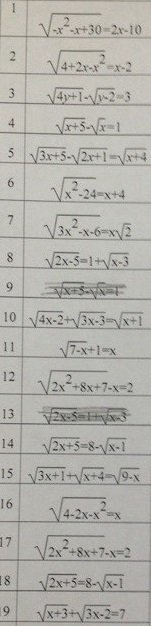 1 √(-x²-x+30)=2x-10
2 √(4+2x-x²)=x-2
3 √(4y+1)-√(y-2)=3
4 √(x+5)-√x=1
5 √(3x+5)-√(2x+1)=√(x+4)
6 √(x²-24)=x+4
7 √(3x²-x-6)=x√2
8 √(2x-5)=1+√(x-3)
9 √(x+5)-√x=1
10 √(4x-2)+√(3x-3)=√(x+1)
11 √(7-x+1)=x
12 √(2x²+8x+7)-x=2
13 √(2x-5)=1+√(x-3)
14 √(2x+5)=8-√(x-1)
15 √(3x+1)+√(x+4)=√(9-x)
16 √(4-2x-x²)=x
17 √(2x²+8x+7)-x=2
18 √(2x+5)=8-√(x-1)
19 √(x+3)+√(3x-2)=7